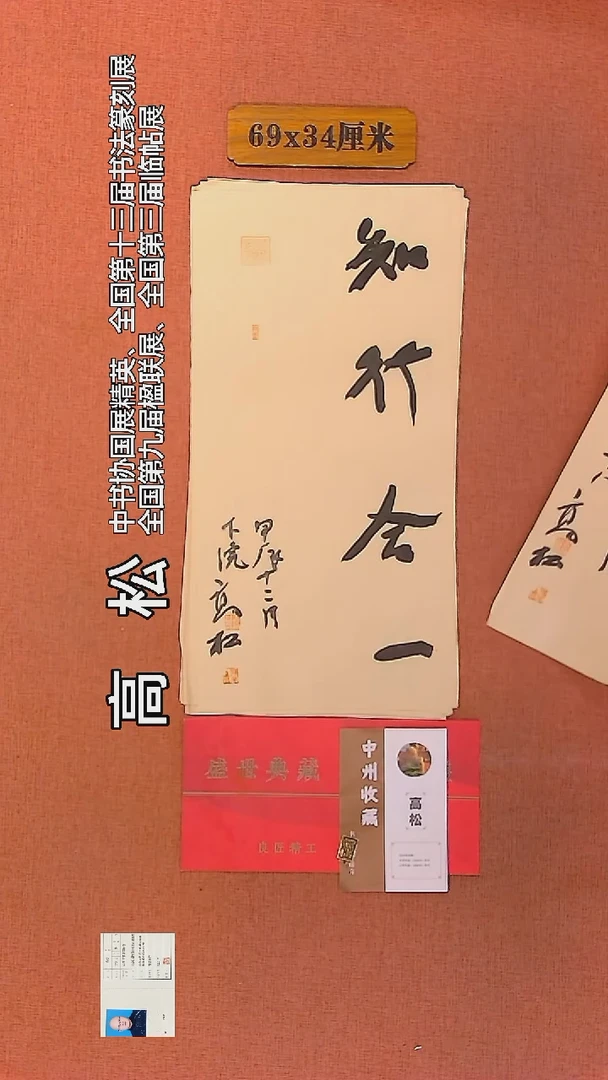 69x34厘米
知行合一
甲辰十二月
下浣高松
高松
中书协国展精英、全国第十三届书法篆刻展
全国第九届楹联展、全国第三届临帖展
高松
盛世典藏
良匠精工
中州收藏
高松